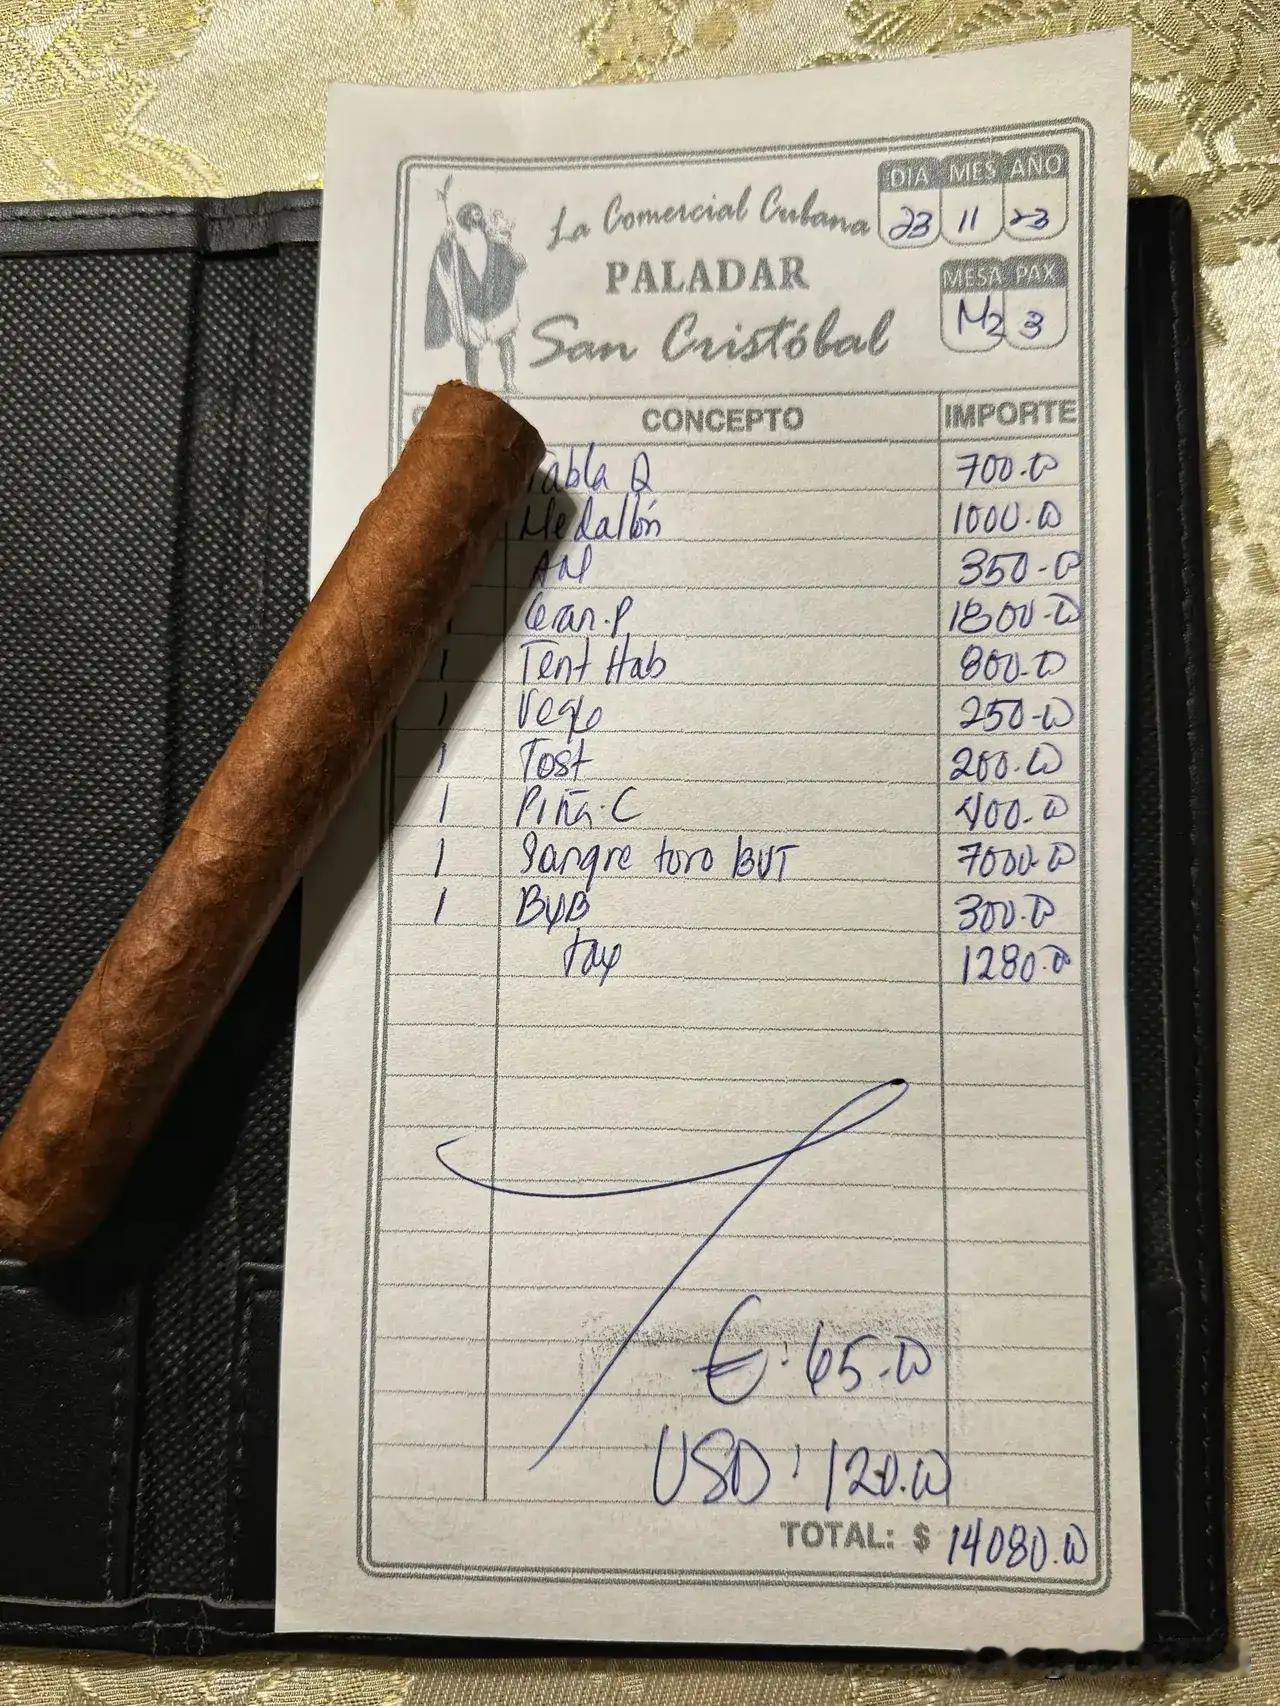 La Comercial Cubana
PALADAR
San Cristóbal
DIA MES AÑO
23 11 23
MESA PAX
M2 3
CONCEPTO IMPORTE
Tabla Q 700.00
Medallón 1000.00
350.00
Gran.P 1800.00
1 Tent Hab 800.00
1 250.00
1 Tost 200.00
1 Piña.C 400.00
1 Sangre toro BUT 7000.00
1 ByB 300.00
tax 1280.00
€: 65.00
USD: 120.00
TOTAL: $ 14080.00